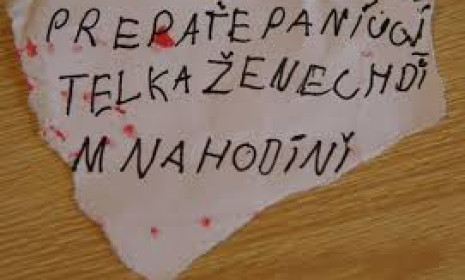 PREPAŤEPANÍUČÍ
TELKAŽENECHDÍ
MNAHODÍNÍ